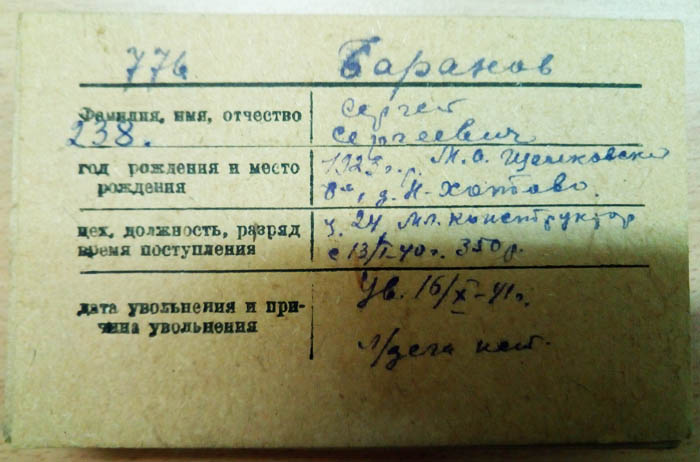 776 Баранов
Фамилия, имя, отчество Сергей
238. Сергеевич
год рождения и место 1923 г.р. М.О. Щелковский
рождения р-н, д. Н-Хотово.
цех, должность, разряд ц. 24 Мл. конструктор
время поступления с 13/I-40г. 350р.
дата увольнения и при- Ув. 16/X-41г.
чина увольнения л/дела нет.